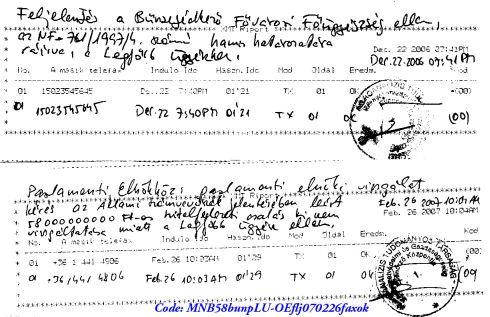 Feljelentés a Bűnügyi Fővárosi Főügyészség ellen,
az NF. 761/1997/4. számú hamis határozatára
rájírva, a Legfőbb Ügyészhez.
XMT Report
Dec. 22 2006 07:41PM
Dec. 22 2006 07:41PM
No. A másik telefax Induló Idő Haszn. Idő Mod Oldal Eredm. Kod
01 15023545645 Dec.22 7:40PM 01'21 TX 01 OK (00)
01 15023545645 Dec.22 7:40PM 01'21 TX 01 OK (00)
Parlamenti Elnökhöz: parlamenti elnöki vizsgálat
kérés az Állami számvevőszék jelentésében leírt
58000000000 Ft-os hitelfejlesztési csalás ki nem
vizsgáltatása miatt a Legfőbb Ügyész ellen.
Feb. 26 2007 10:04AM
Feb. 26 2007 10:04AM
No. A másik telefax Induló Idő Haszn. Idő Mod Oldal Eredm. Kod
01 +36 1 441 4806 Feb.26 10:03AM 01'29 TX 01 OK (00)
01 +36/441 4806 Feb.26 10:03AM 01'29 TX 01 OK (00)
Code: MNB58bunpLU-OEflj070226faxok